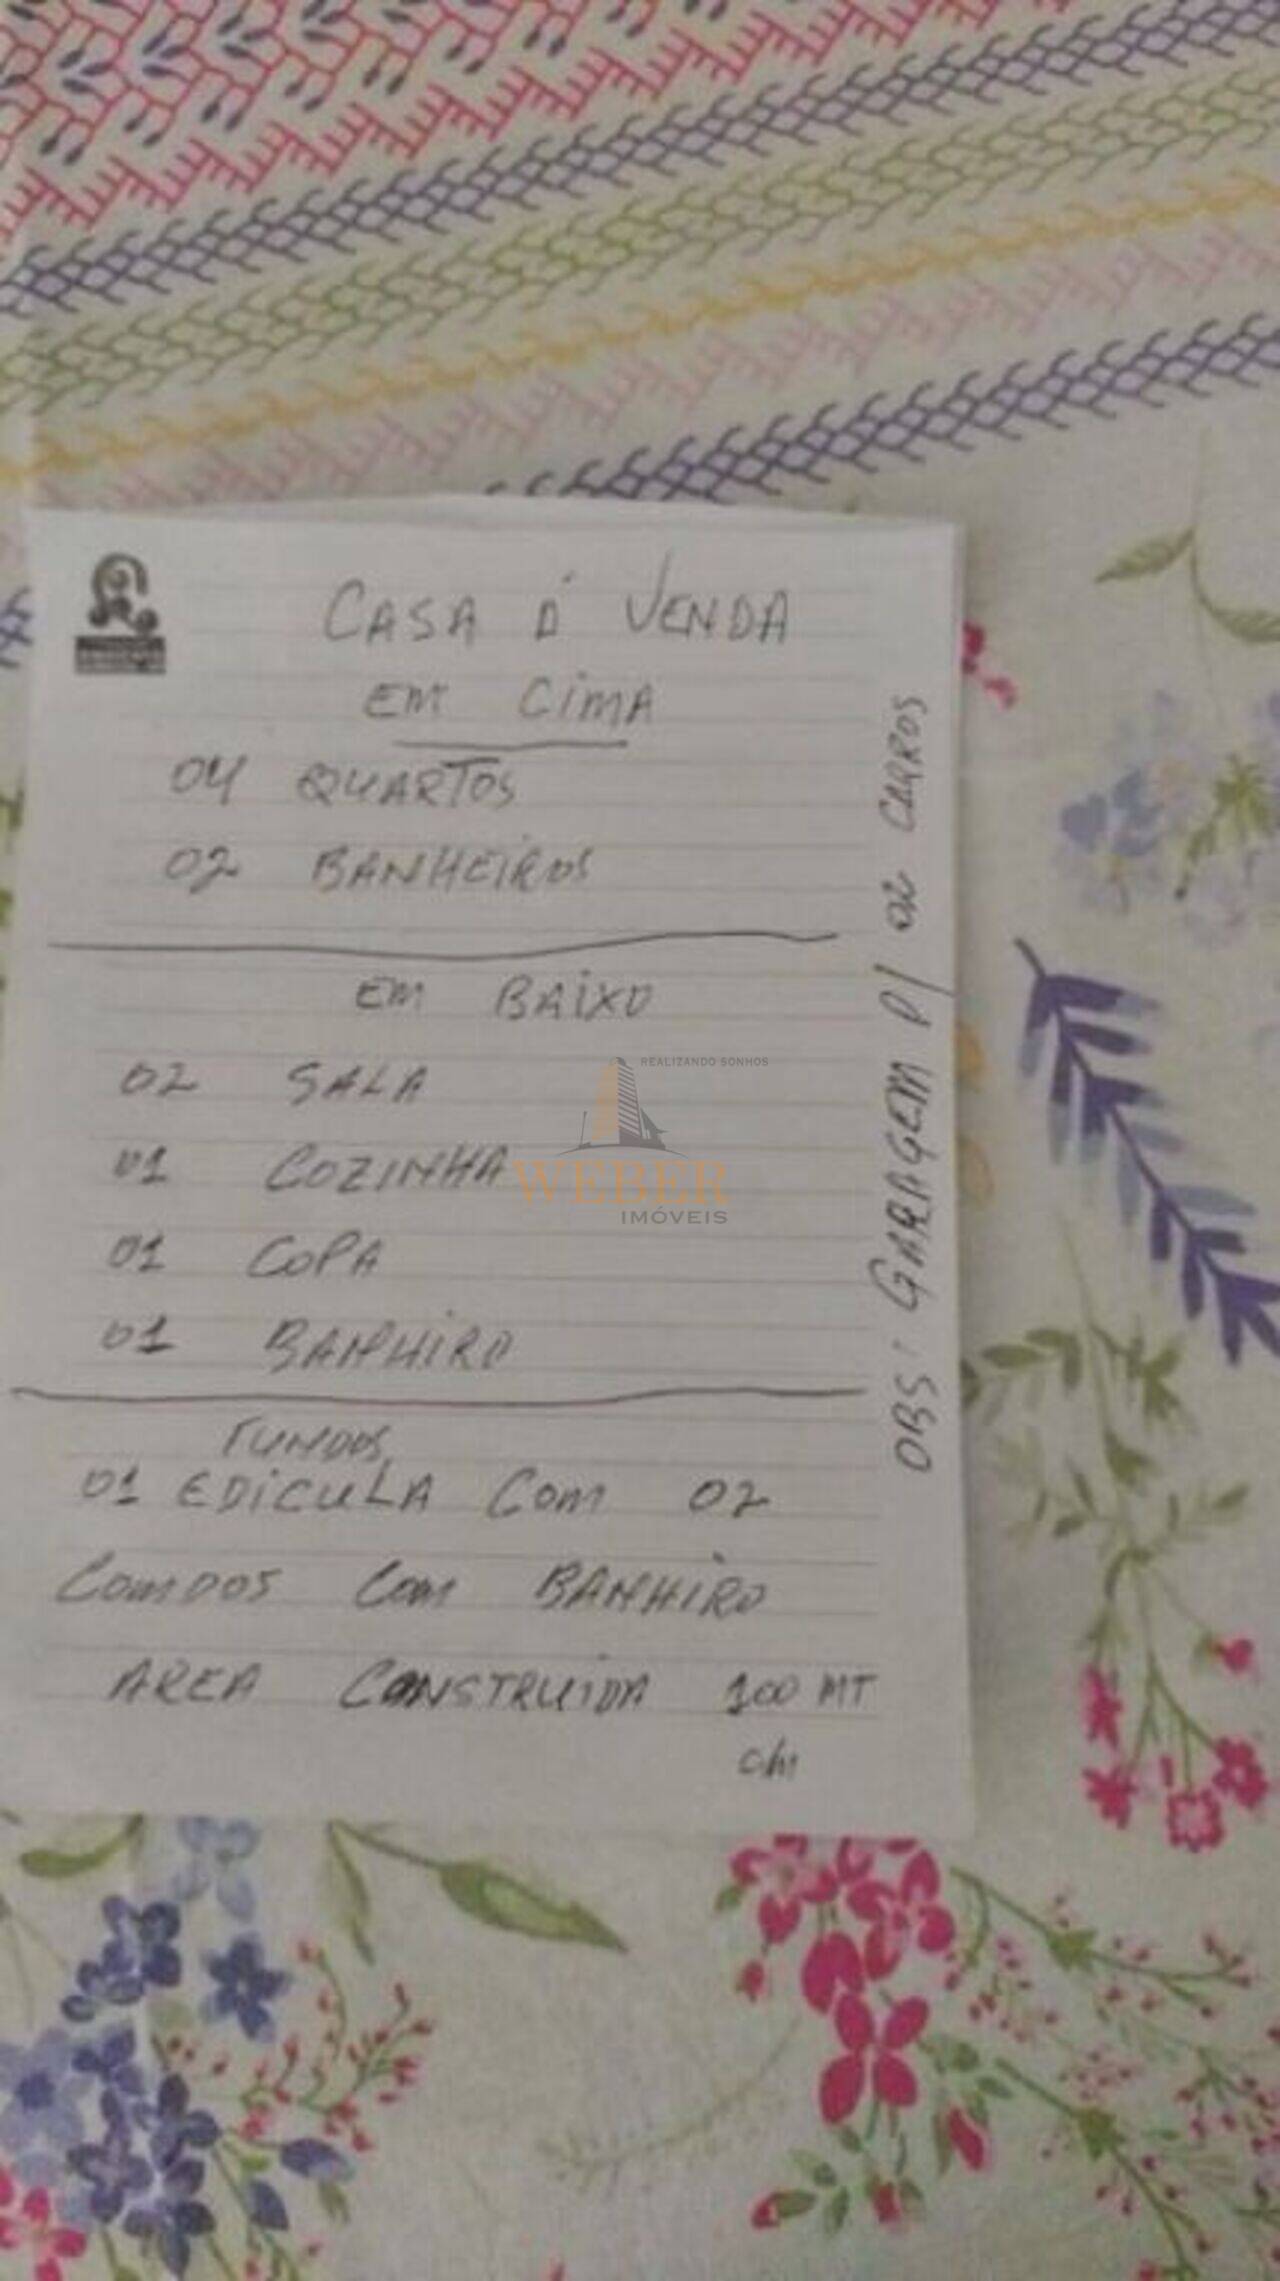 CASA Á VENDA
EM CIMA
04 QUARTOS
02 BANHEIROS
EM BAIXO
02 SALA
01 COZINHA
01 COPA
01 BANHIRO
FUNDOS
01 EDICULA COM 02
COMDOS COM BANHIRO
AREA CONSTRUIDA 100 MT
OBS: GARRAGEM P/ 02 CARROS
REALIZANDO SONHOS
WEBER
IMÓVEIS